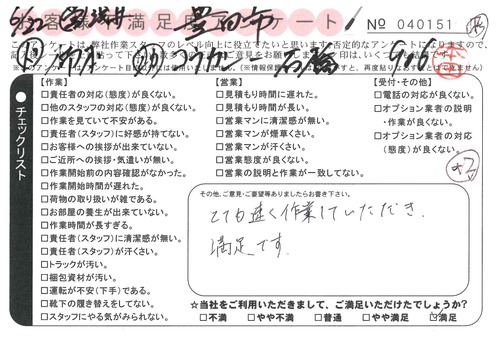 お客様満足度アンケート! No 040151
6/22 豊田市
このアンケートは、弊社作業スタッフのレベル向上に役立てたいと思います。否定的なアンケートになりますので、
チェックリスト
【作業】
□責任者の対応(態度)が良くない。
□他のスタッフの対応(態度)が良くない。
□作業を見ていて不安がある。
□責任者(スタッフ)に好感が持てない。
□お客様への挨拶が出来ていない。
□ご近所への挨拶・気遣いが無い。
□作業開始前の内容確認がなかった。
□作業開始時間が遅れた。
□荷物の取り扱いが雑である。
□お部屋の養生が出来ていない。
□作業時間が長すぎる。
□責任者(スタッフ)に清潔感が無い。
□責任者(スタッフ)が汗くさい。
□トラックが汚い。
□梱包資材が汚い。
□運転が不安(下手)である。
□靴下の履き替えをしてない。
□スタッフにやる気がみられない。
【営業】
□見積もり時間に遅れた。
□見積もり時間が長い。
□営業マンに清潔感が無い。
□営業マンが煙草くさい。
□営業マンが汗くさい。
□営業態度が良くない。
□営業の説明と作業が一致してない。
【受付・その他】
□電話の対応が良くない。
□オプション業者の説明
・作業が良くない。
□オプション業者の対応
(態度)が良くない。
その他、ご意見・ご要望等ありましたらお書き下さい。
とても速く作業していただき、
満足です。
☆当社をご利用いただきまして、ご満足いただけたでしょうか?
□不満 □やや不満 □普通 □やや満足 ☑満足